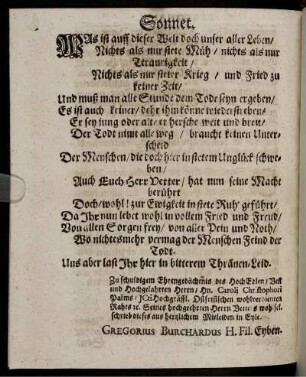 Sonnet.
WAs ist auff dieser Welt doch unser aller Leben/
Nichts als nur stete Müh/ nichts als nur
Traurigkeit/
Nichts als nur steter Krieg/ und Fried zu
keiner Zeit/
Und muß man alle Stunde dem Tode seyn ergeben/
Es ist auch keiner/ der ihm könne wiederstreben/
Er sey jung oder alt/ er hersche weit und breit/
Der Todt nimt alle weg/ braucht keinen Unter-
scheid
Der Menschen/ die doch hier in stetem Unglück schwe-
ben/
Auch Euch Herr Vetter/ hat nun seine Macht
berührt
Doch/wohl! zur Ewigkeit in stete Ruh' geführt/
Da Ihr nun lebet wohl in vollem Fried und Freud/
Von allen Sorgen frey/ von aller Pein und Noth/
Wo nichtes mehr vermag der Menschen Feind der
Todt.
Uns aber last Ihr hier in bitterem Thränen-Leid.
Zu schuldigem Ehrengedächtnis des HochEdlen/ Vest
und Hochgelahrten Herrn/ Hn. Caroli Christophori
Palms/ JCti Hochgräfl. wohlverordneten
Rahts ꝛc. Seines hochgeehrten Herrn Vetters
schrieb dieses aus hertzlichem Mitleiden in Eyle.
GREGORIUS BURCHARDUS H. Fil. Eyben.